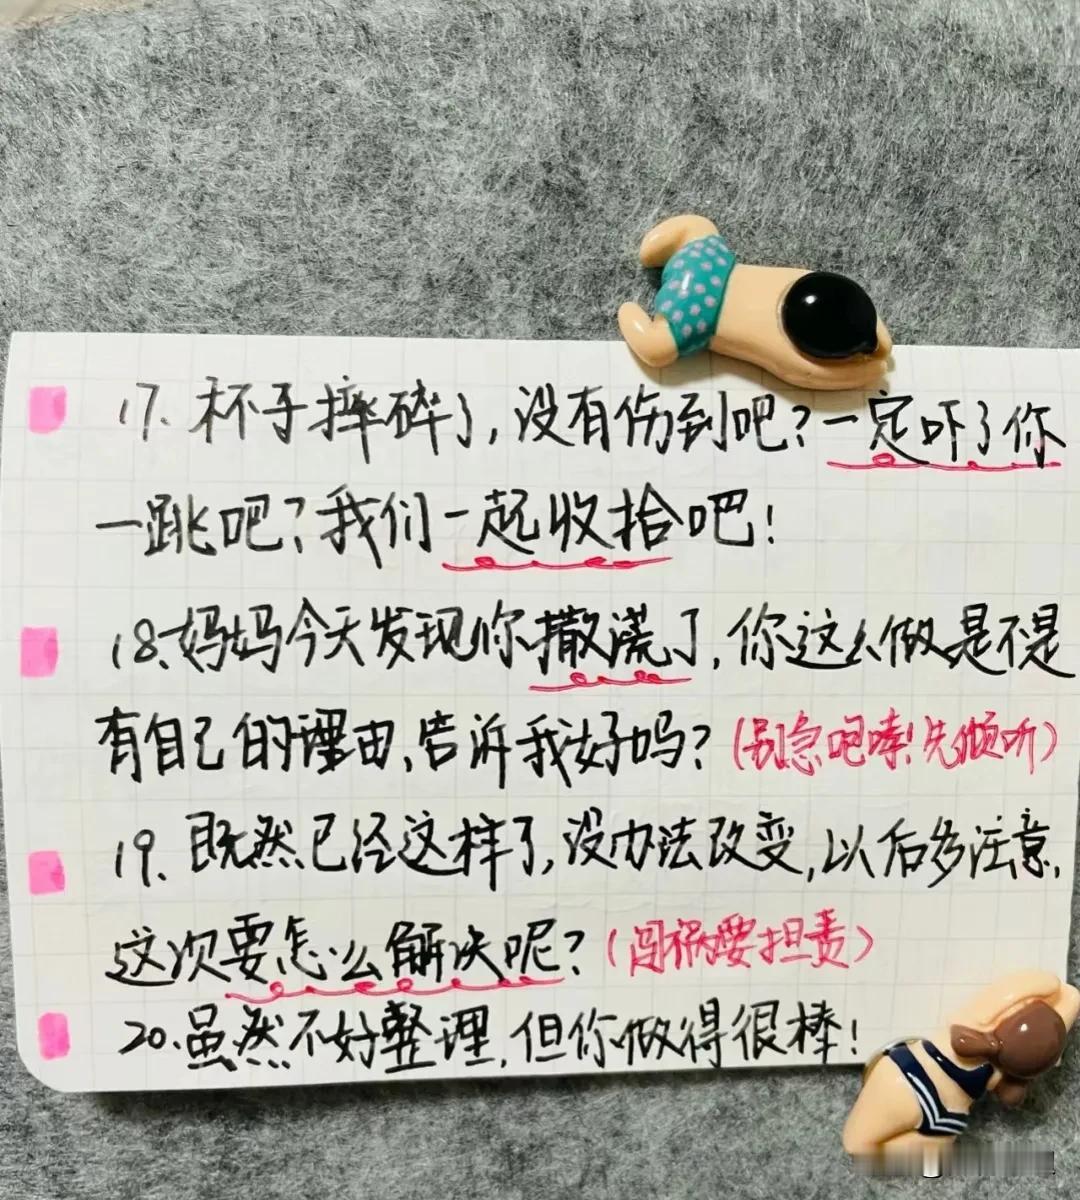 17. 杯子摔碎了,没有伤到吧?一定吓了你
一跳吧?我们一起收拾吧!
18、妈妈今天发现你撒谎了,你这么做是不是
有自己的理由,告诉我好吗?(别急吧嗪!先倾听)
19. 既然已经这样了,没办法改变,以后多注意,
这次要怎么解决呢?(闯祸要担责)
20.虽然不好整理,但你做得很棒!